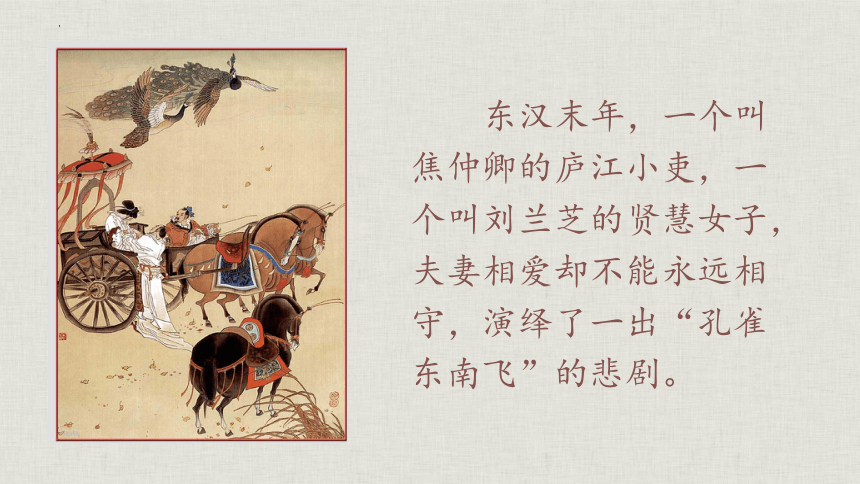 东汉末年，一个叫
焦仲卿的庐江小吏，一
个叫刘兰芝的贤慧女子，
夫妻相爱却不能永远相
守，演绎了一出“孔雀
东南飞”的悲剧。